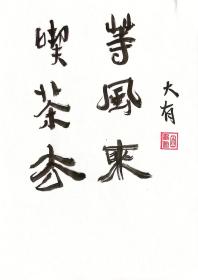 等風來
喫茶去
大有